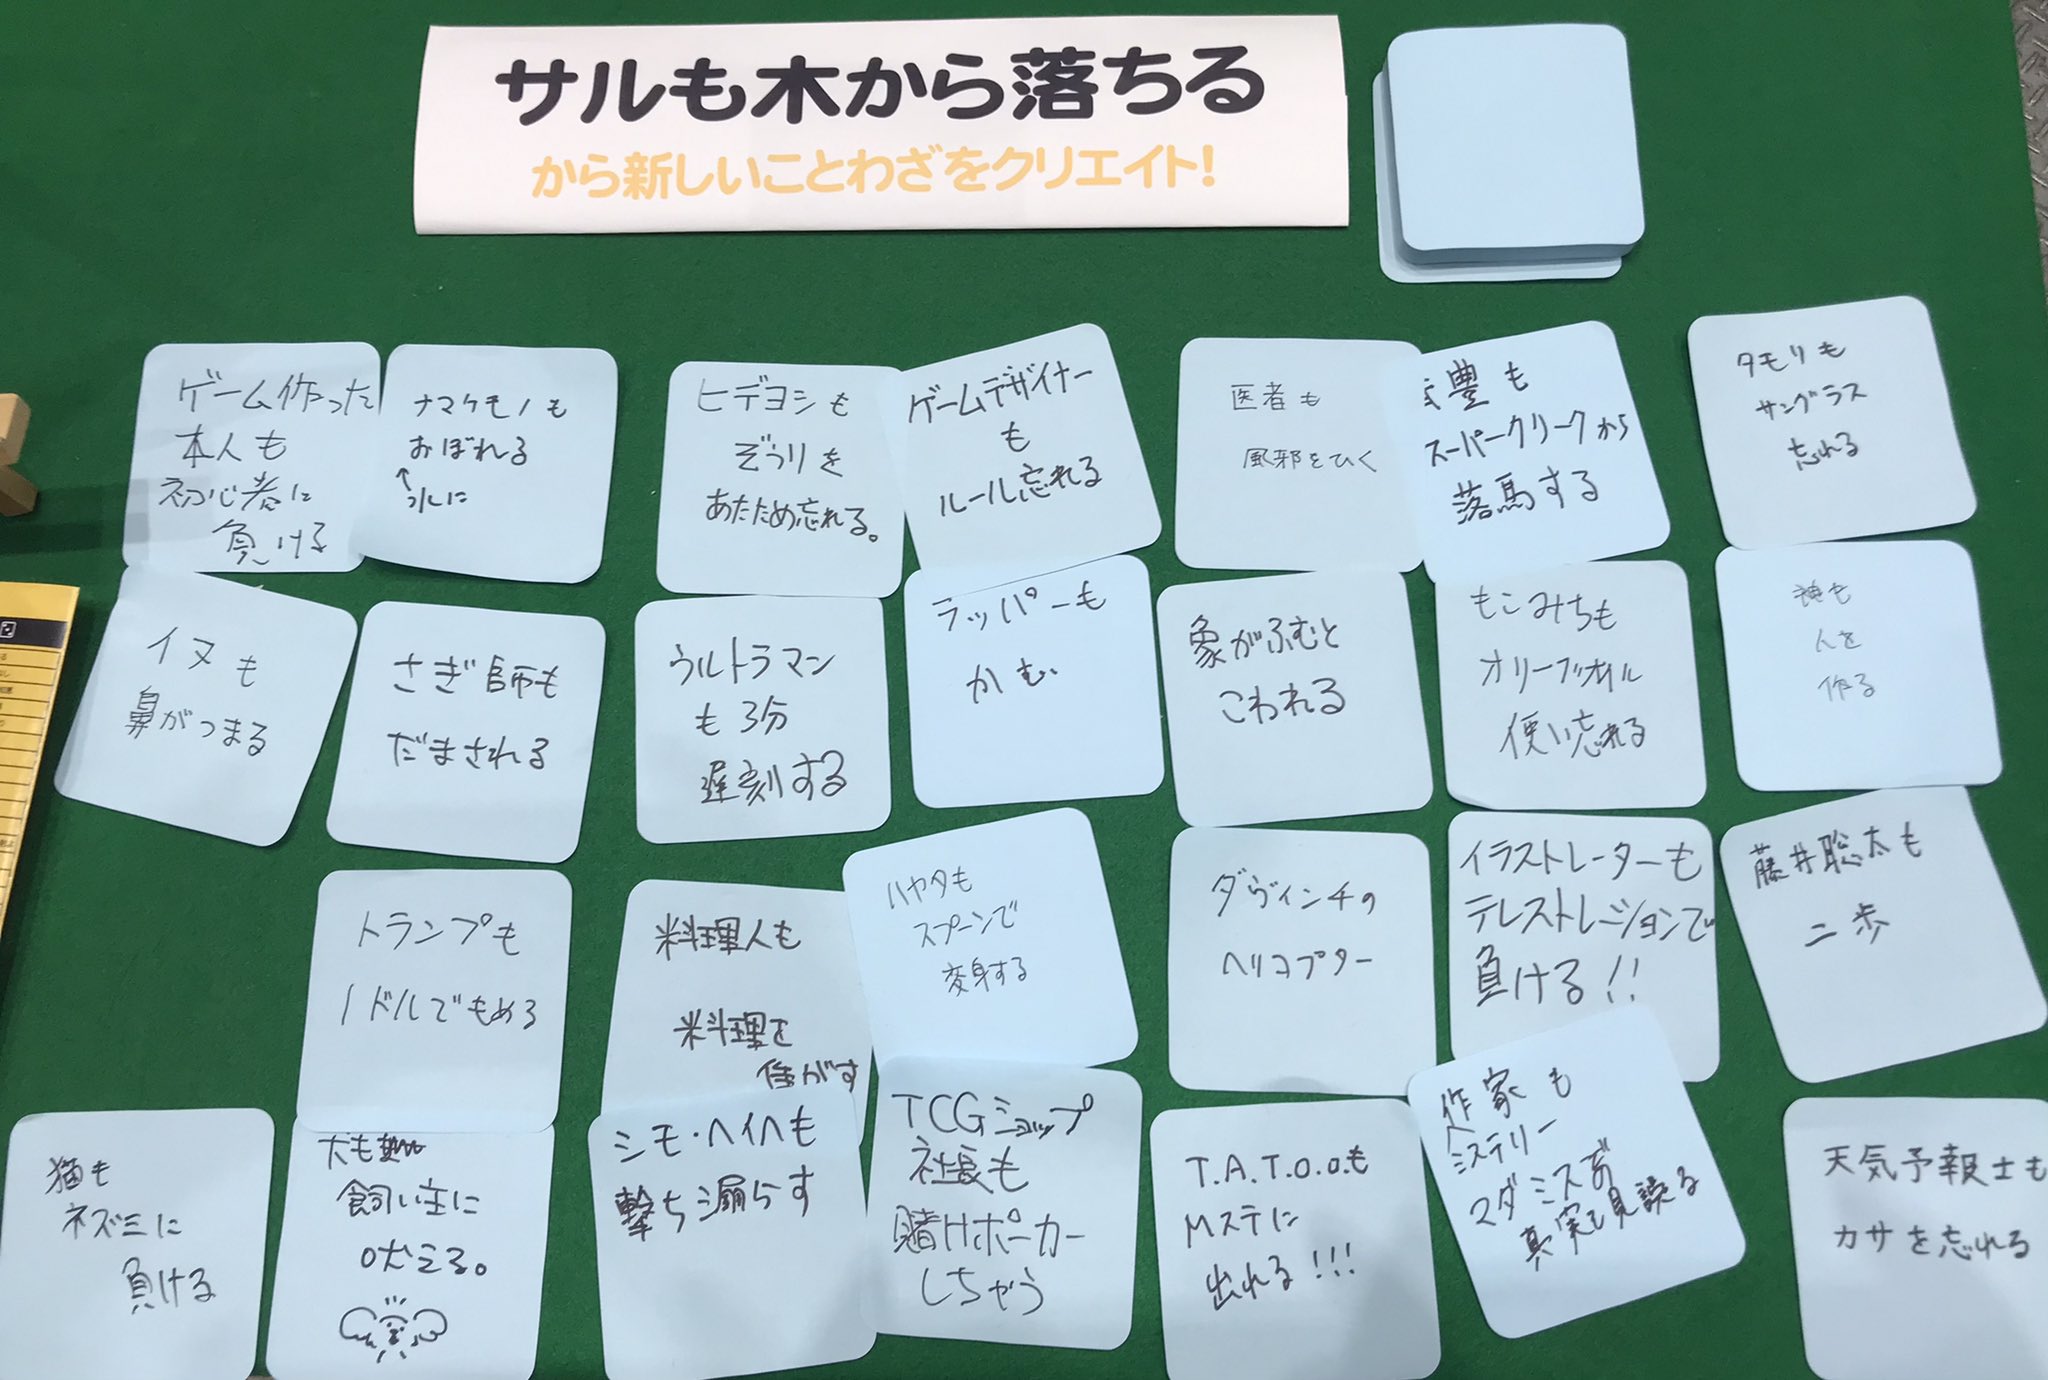 サルも木から落ちる
から新しいことわざをクリエイト!
ゲーム作った
本人も
初心者に
負ける
ナマケモノも
おぼれる
↑
水に
ヒデヨシも
ぞうりを
あたため忘れる。
ゲームデザイナー
も
ルール忘れる
医者も
風邪をひく
豊も
スーパークリークから
落馬する
タモリも
サングラス
忘れる
イヌも
鼻がつまる
さぎ師も
だまされる
ウルトラマン
も3分
遅刻する
ラッパーも
かむ
象がふむと
こわれる
もこみちも
オリーブオイル
使い忘れる
神も
人を
作る
トランプも
1ドルでもめる
料理人も
料理を
焦がす
ハヤタも
スプーンで
変身する
ダヴィンチの
ヘリコプター
イラストレーターも
テレストレーションで
負ける!!
藤井聡太も
二歩
猫も
ネズミに
負ける
犬も
飼い主に
吠える。
シモ・ヘイヘも
撃ち漏らす
TCGショップ
社長も
賭けポーカー
しちゃう
T.A.T.o.oも
Mステに
出れる!!!
作家も
ミステリー
マダミスの
真実を見誤る
天気予報士も
カサを忘れる